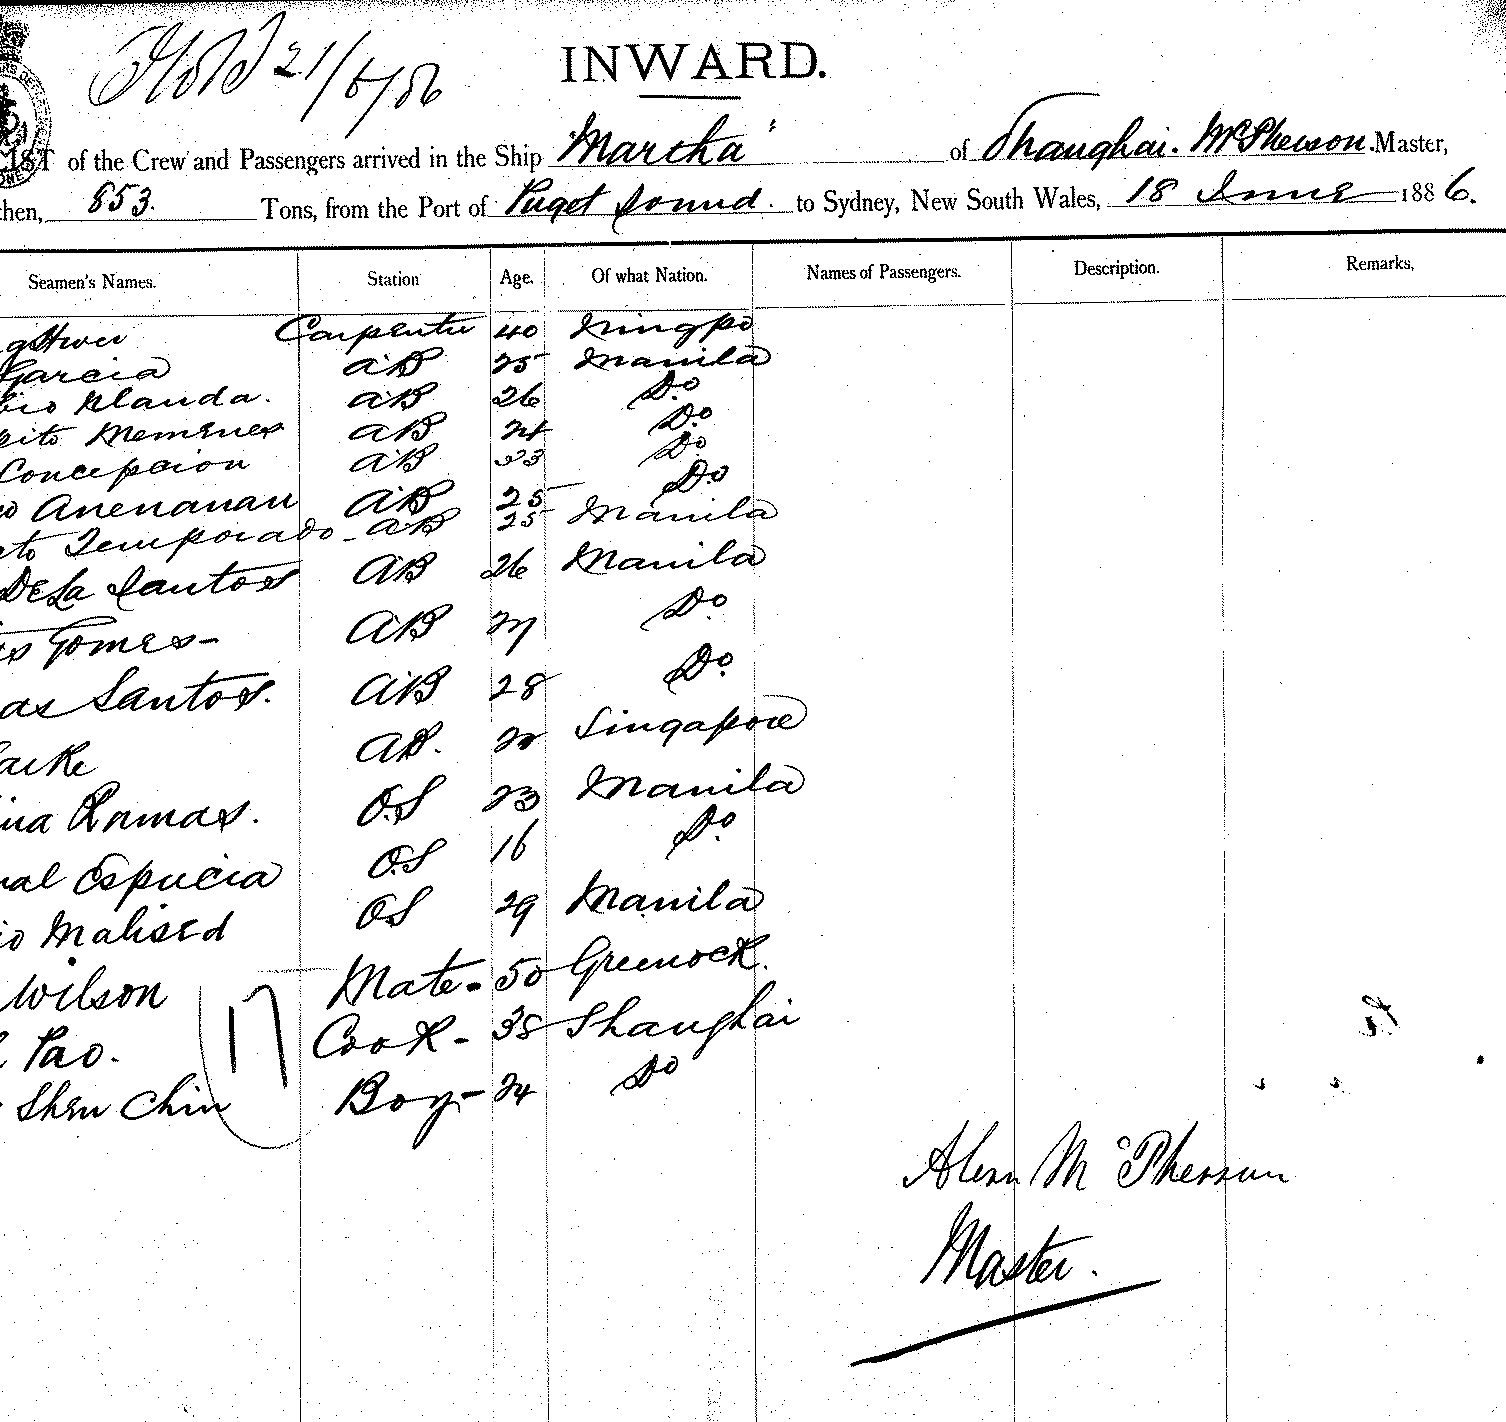 21/6/86
INWARD.
LIST of the Crew and Passengers arrived in the Ship "Martha" of Shanghai. McPherson. Master,
then, 853. Tons, from the Port of Puget Sound. to Sydney, New South Wales, 18 June 1886.
Seamen's Names. Station Age. Of what Nation. Names of Passengers. Description. Remarks,
Carpenter 40 Ningpo
Garcia AB 25 Manila
AB 26 Do
AB 24 Do
Concepcion AB 33 Do
AB 25 Do
Temporado - AB 25 Manila
De La Santos AB 26 Manila
Gomes - AB 27 Do
Santos. AB 28 Do
AB. Singapore
Ramas. OS 23 Manila
OS 16 Do
Malised OS 29 Manila
Wilson Mate - 50 Greenock.
Pao. Cook - 38 Shanghai
Shen Chin Boy - 24 Do
17
Alexr McPherson
Master.